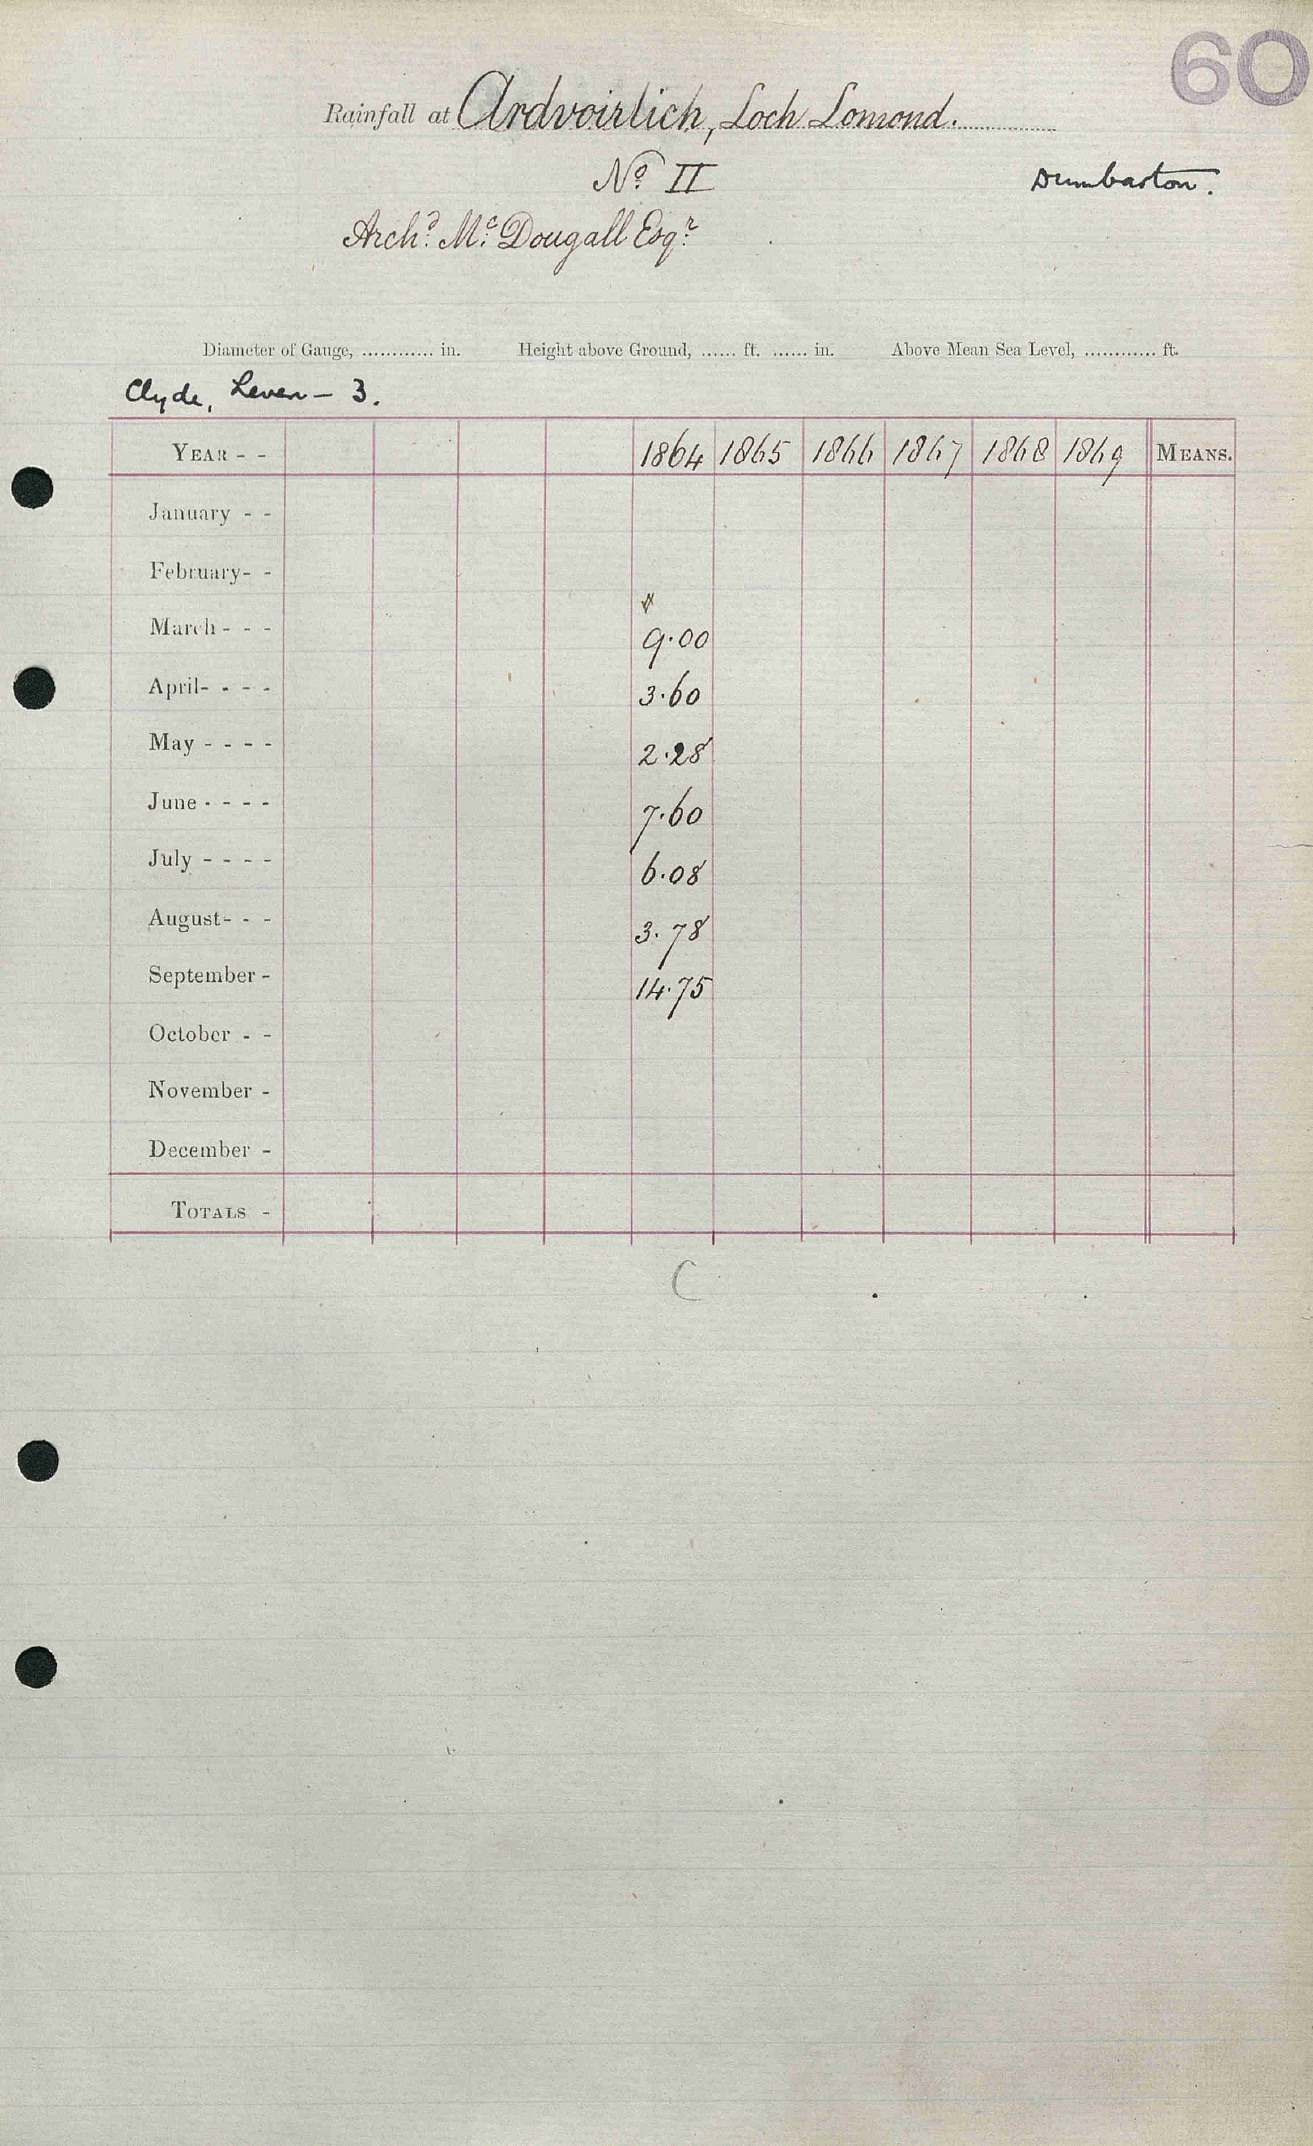 60
Rainfall at Ardvoirlich, Loch Lomond.
No. II
Dumbarton.
Archd. Mc. Dougall Esqr.
Diameter of Gauge, ............ in. Height above Ground, ...... ft. ...... in. Above Mean Sea Level, ............ ft.
Clyde, Leven - 3.
YEAR - - 1864 1865 1866 1867 1868 1869 MEANS.
January - -
February- -
March - - - 9.00
April- - - - 3.60
May - - - - 2.28
June - - - - 7.60
July - - - - 6.08
August- - - 3.78
September - 14.75
October - -
November -
December -
TOTALS -
C